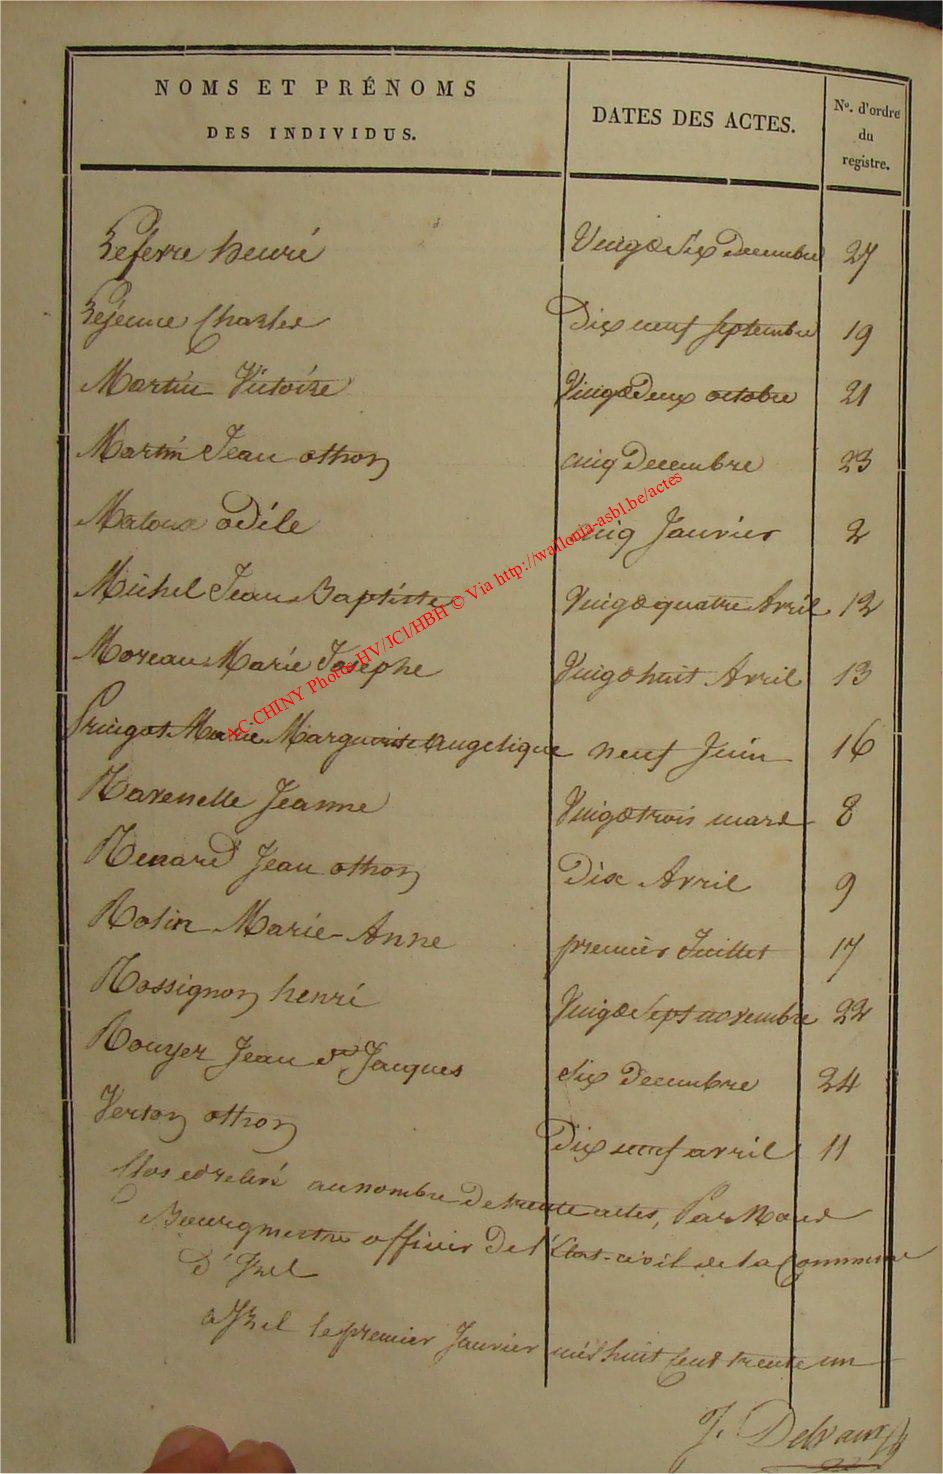 NOMS ET PRÉNOMS
DES INDIVIDUS.
DATES DES ACTES.
No. d'ordre
du
registre.
Lefevre henri Vingt Six Decembre 27
Lejeune Charles Dix neuf septembre 19
Martin Victoire Vingt Deux octobre 21
Martin Jean othon cinq Decembre 23
Matoux odéle cinq Janvier 2
Michel Jean Baptiste Vingt quatre Avril 12
Moreau Marie Josephe Vingt huit Avril 13
Pringot Marie Marguerite Angelique neuf Juin 16
Ravenelle Jeanne Vingt trois mars 8
Renard Jean othon Dix Avril 9
Rolin Marie-Anne premier Juillet 17
Rossignon henri Vingt Sept novembre 22
Rouyer Jean Jacques Six Decembre 24
Verton othon Dix neuf avril 11
Clos et au nombre De trente actes, Par Nous
Bourgmestre officier De l'Etat-civil de la Commune
D'Izel
a Izel le premier Janvier mil huit cent trente un
J. Delvaux
AC-CHINY Photos HV/JCl/HBH © Via http://wallonia-asbl.be/actes